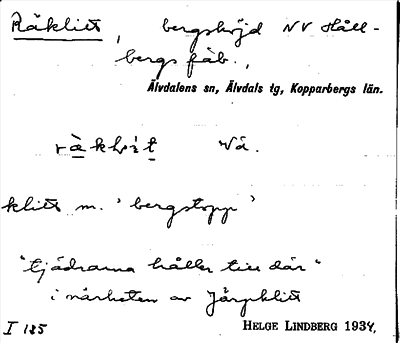 Råklitt, bergshöjd NV Håll-
bergs fäb.,
Älvdalens sn, Älvdals tg, Kopparbergs län.
Vå.
klitt m. 'bergstopp'
"tjädrarna håller till där"
i närheten av Järpklitt
I 185
HELGE LINDBERG 1934.